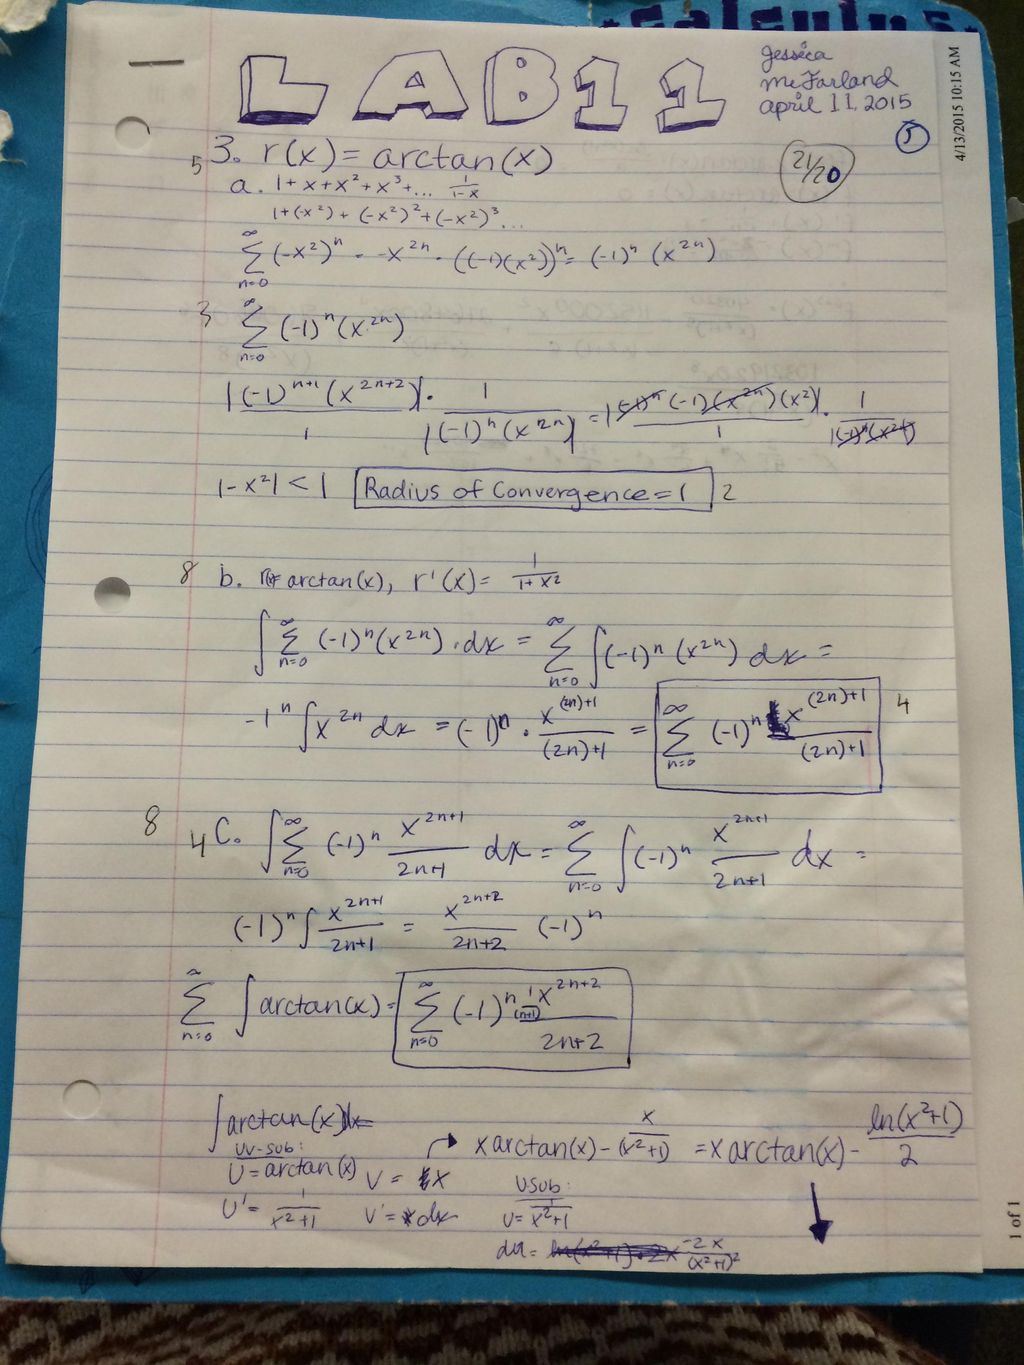 Calculus
LAB 11
Jessica
McFarland
april 11, 2015
5
4/13/2015 10:15 AM
21/20
5 3. r(x) = arctan(x)
a. 1 + x + x² + x³ + ... 1/(1-x)
1 + (-x²) + (-x²)² + (-x²)³ ...
∞ Σ n=0 (-x²)ⁿ = -x²ⁿ = ((-1)(x²))ⁿ = (-1)ⁿ (x²ⁿ)
3 ∞ Σ n=0 (-1)ⁿ (x²ⁿ)
|(-1)ⁿ⁺¹ (x²ⁿ⁺²)|/1 · 1/|(-1)ⁿ(x²ⁿ)| = |(-1)ⁿ(-1)(x²ⁿ)(x²)|/1 · 1/|(-1)ⁿ(x²ⁿ)|
|-x²| < 1 Radius of Convergence = 1 2
8 b. arctan(x), r'(x) = 1/(1+x²)
∫ ∞ Σ n=0 (-1)ⁿ(x²ⁿ) · dx = ∞ Σ n=0 ∫(-1)ⁿ (x²ⁿ) dx =
-1ⁿ ∫x²ⁿ dx = (-1)ⁿ · x^((2n)+1)/((2n)+1) = ∞ Σ n=0 (-1)ⁿ x^((2n)+1)/((2n)+1) 4
8 4 C. ∫ ∞ Σ n=0 (-1)ⁿ x²ⁿ⁺¹/(2n+1) dx = ∞ Σ n=0 ∫(-1)ⁿ x²ⁿ⁺¹/(2n+1) dx =
(-1)ⁿ ∫ x²ⁿ⁺¹/(2n+1) = x²ⁿ⁺²/(2n+2) (-1)ⁿ
∞ Σ n=0 ∫arctan(x) = ∞ Σ n=0 (-1)ⁿ 1/(n+1) x²ⁿ⁺²/(2n+2)
∫arctan(x)dx =
uv-sub:
U = arctan(x) V = x
U' = 1/(x²+1) V' = dx
x arctan(x) - x/(x²+1) = x arctan(x) - ln(x²+1)/2
Usub:
U = 1/(x²+1)
du = -2x/(x²+1)²
1 of 1